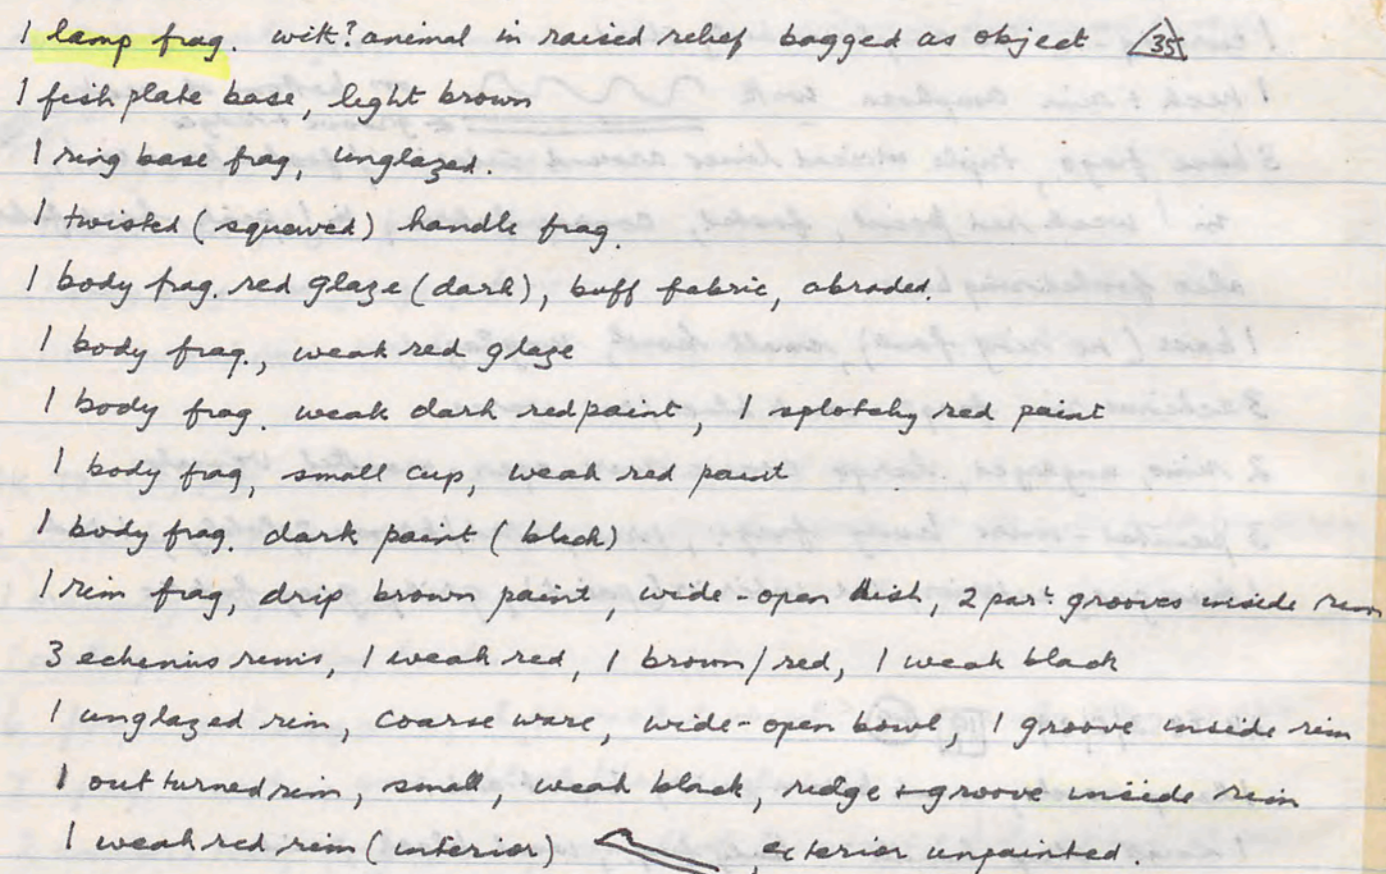 1 lamp frag. with ? animal in raised relief bagged as object 35
1 fish plate base, light brown
1 ring base frag, unglazed.
1 twisted (squared) handle frag.
1 body frag. red glaze (dark), buff fabric, abraded.
1 body frag., weak red glaze
1 body frag. weak dark red paint, 1 splotchy red paint
1 body frag, small cup, weak red paint
1 body frag. dark paint (black)
1 rim frag, drip brown paint, wide-open dish, 2 par. grooves inside rim
3 echenius rims, 1 weak red, 1 brown/red, 1 weak black
1 unglazed rim, coarse ware, wide-open bowl, 1 groove inside rim
1 out turned rim, small, weak black, ridge + groove inside rim
1 weak red rim (interior) , exterior unpainted.